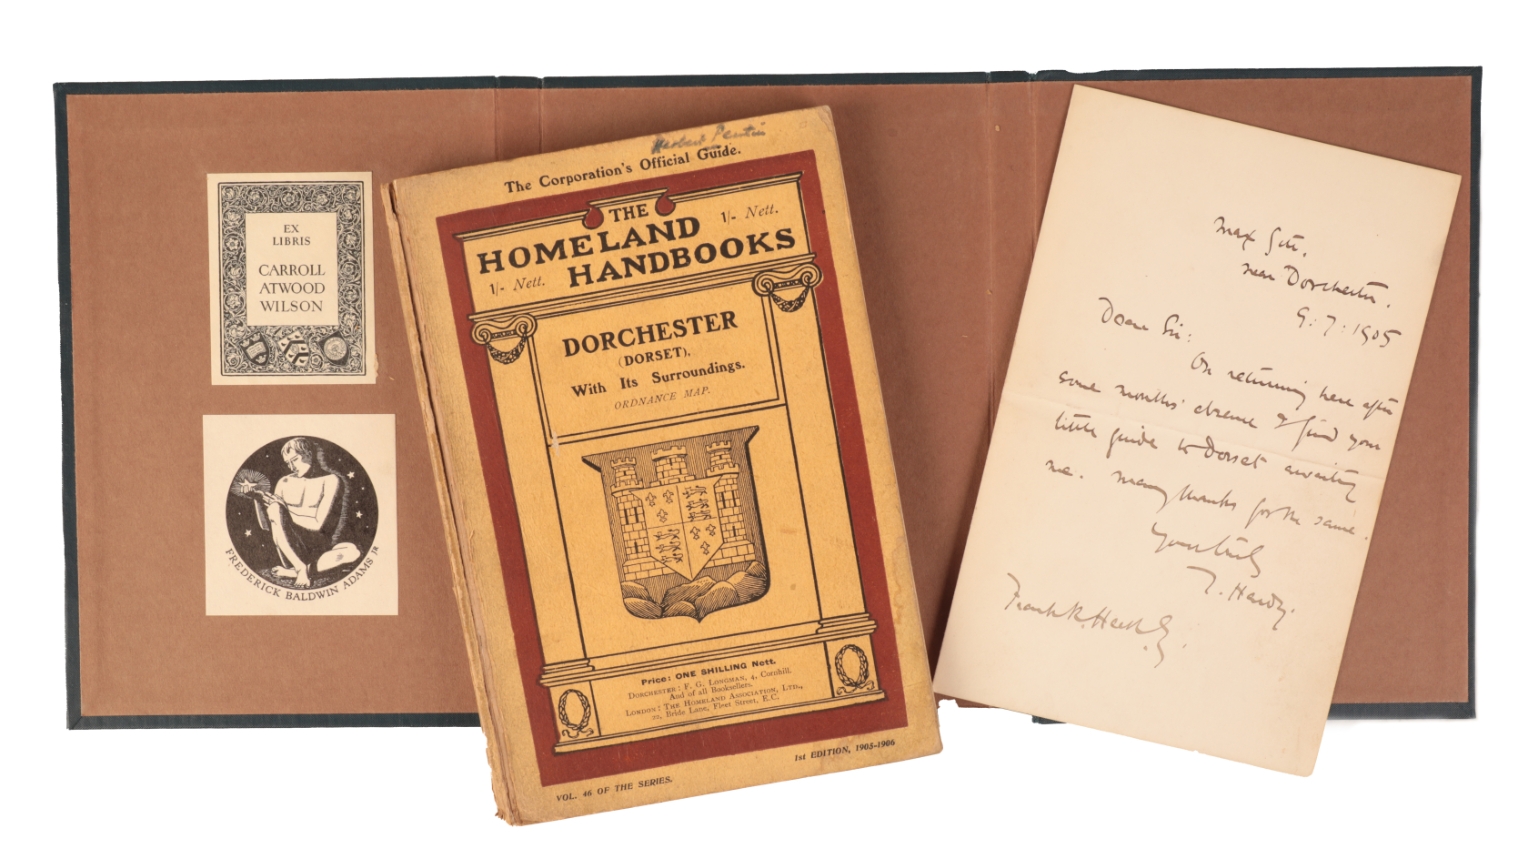 EX
LIBRIS
CARROLL
ATWOOD
WILSON
FREDERICK BALDWIN ADAMS JR
Herbert Pentin
The Corporation's Official Guide.
THE
HOMELAND 1/- Nett.
1/- Nett. HANDBOOKS
DORCHESTER
(DORSET),
With Its Surroundings.
ORDNANCE MAP.
Price: ONE SHILLING Nett.
DORCHESTER: F. G. LONGMAN, 4, Cornhill.
And of all Booksellers.
LONDON: THE HOMELAND ASSOCIATION, LTD.,
22, Bride Lane, Fleet Street, E.C.
VOL. 46 OF THE SERIES.
1st EDITION, 1905-1906
Max Gate,
near Dorchester.
9:7:1905
Dear Sir:
On returning here after
some months' absence I find your
little guide to Dorset awaiting
me. Many thanks for the same.
Yours truly
T. Hardy.
Frank R. Heath Esq.